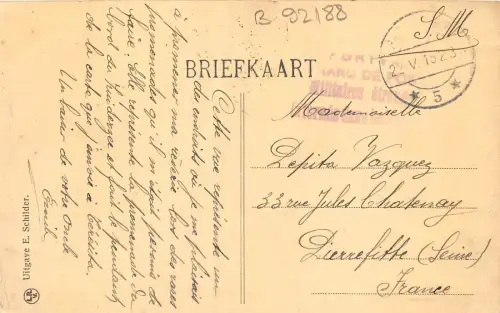 B 92188
S. M
BRIEFKAART
Cette vue représente un
des endroits où je me plaisais
à promener ma rêverie lors des rares
promenades qu'il m'était permis de
faire. Elle représente la promenade du
bord du Zuiderzee et fait le pendant
de la carte que j'envoie à
Un baiser de votre oncle
Emile
Mademoiselle
Pepita Vazquez
33 rue Jules Chatenay
Pierrefitte (Seine)
France
5
Uitgave E. Schilder.